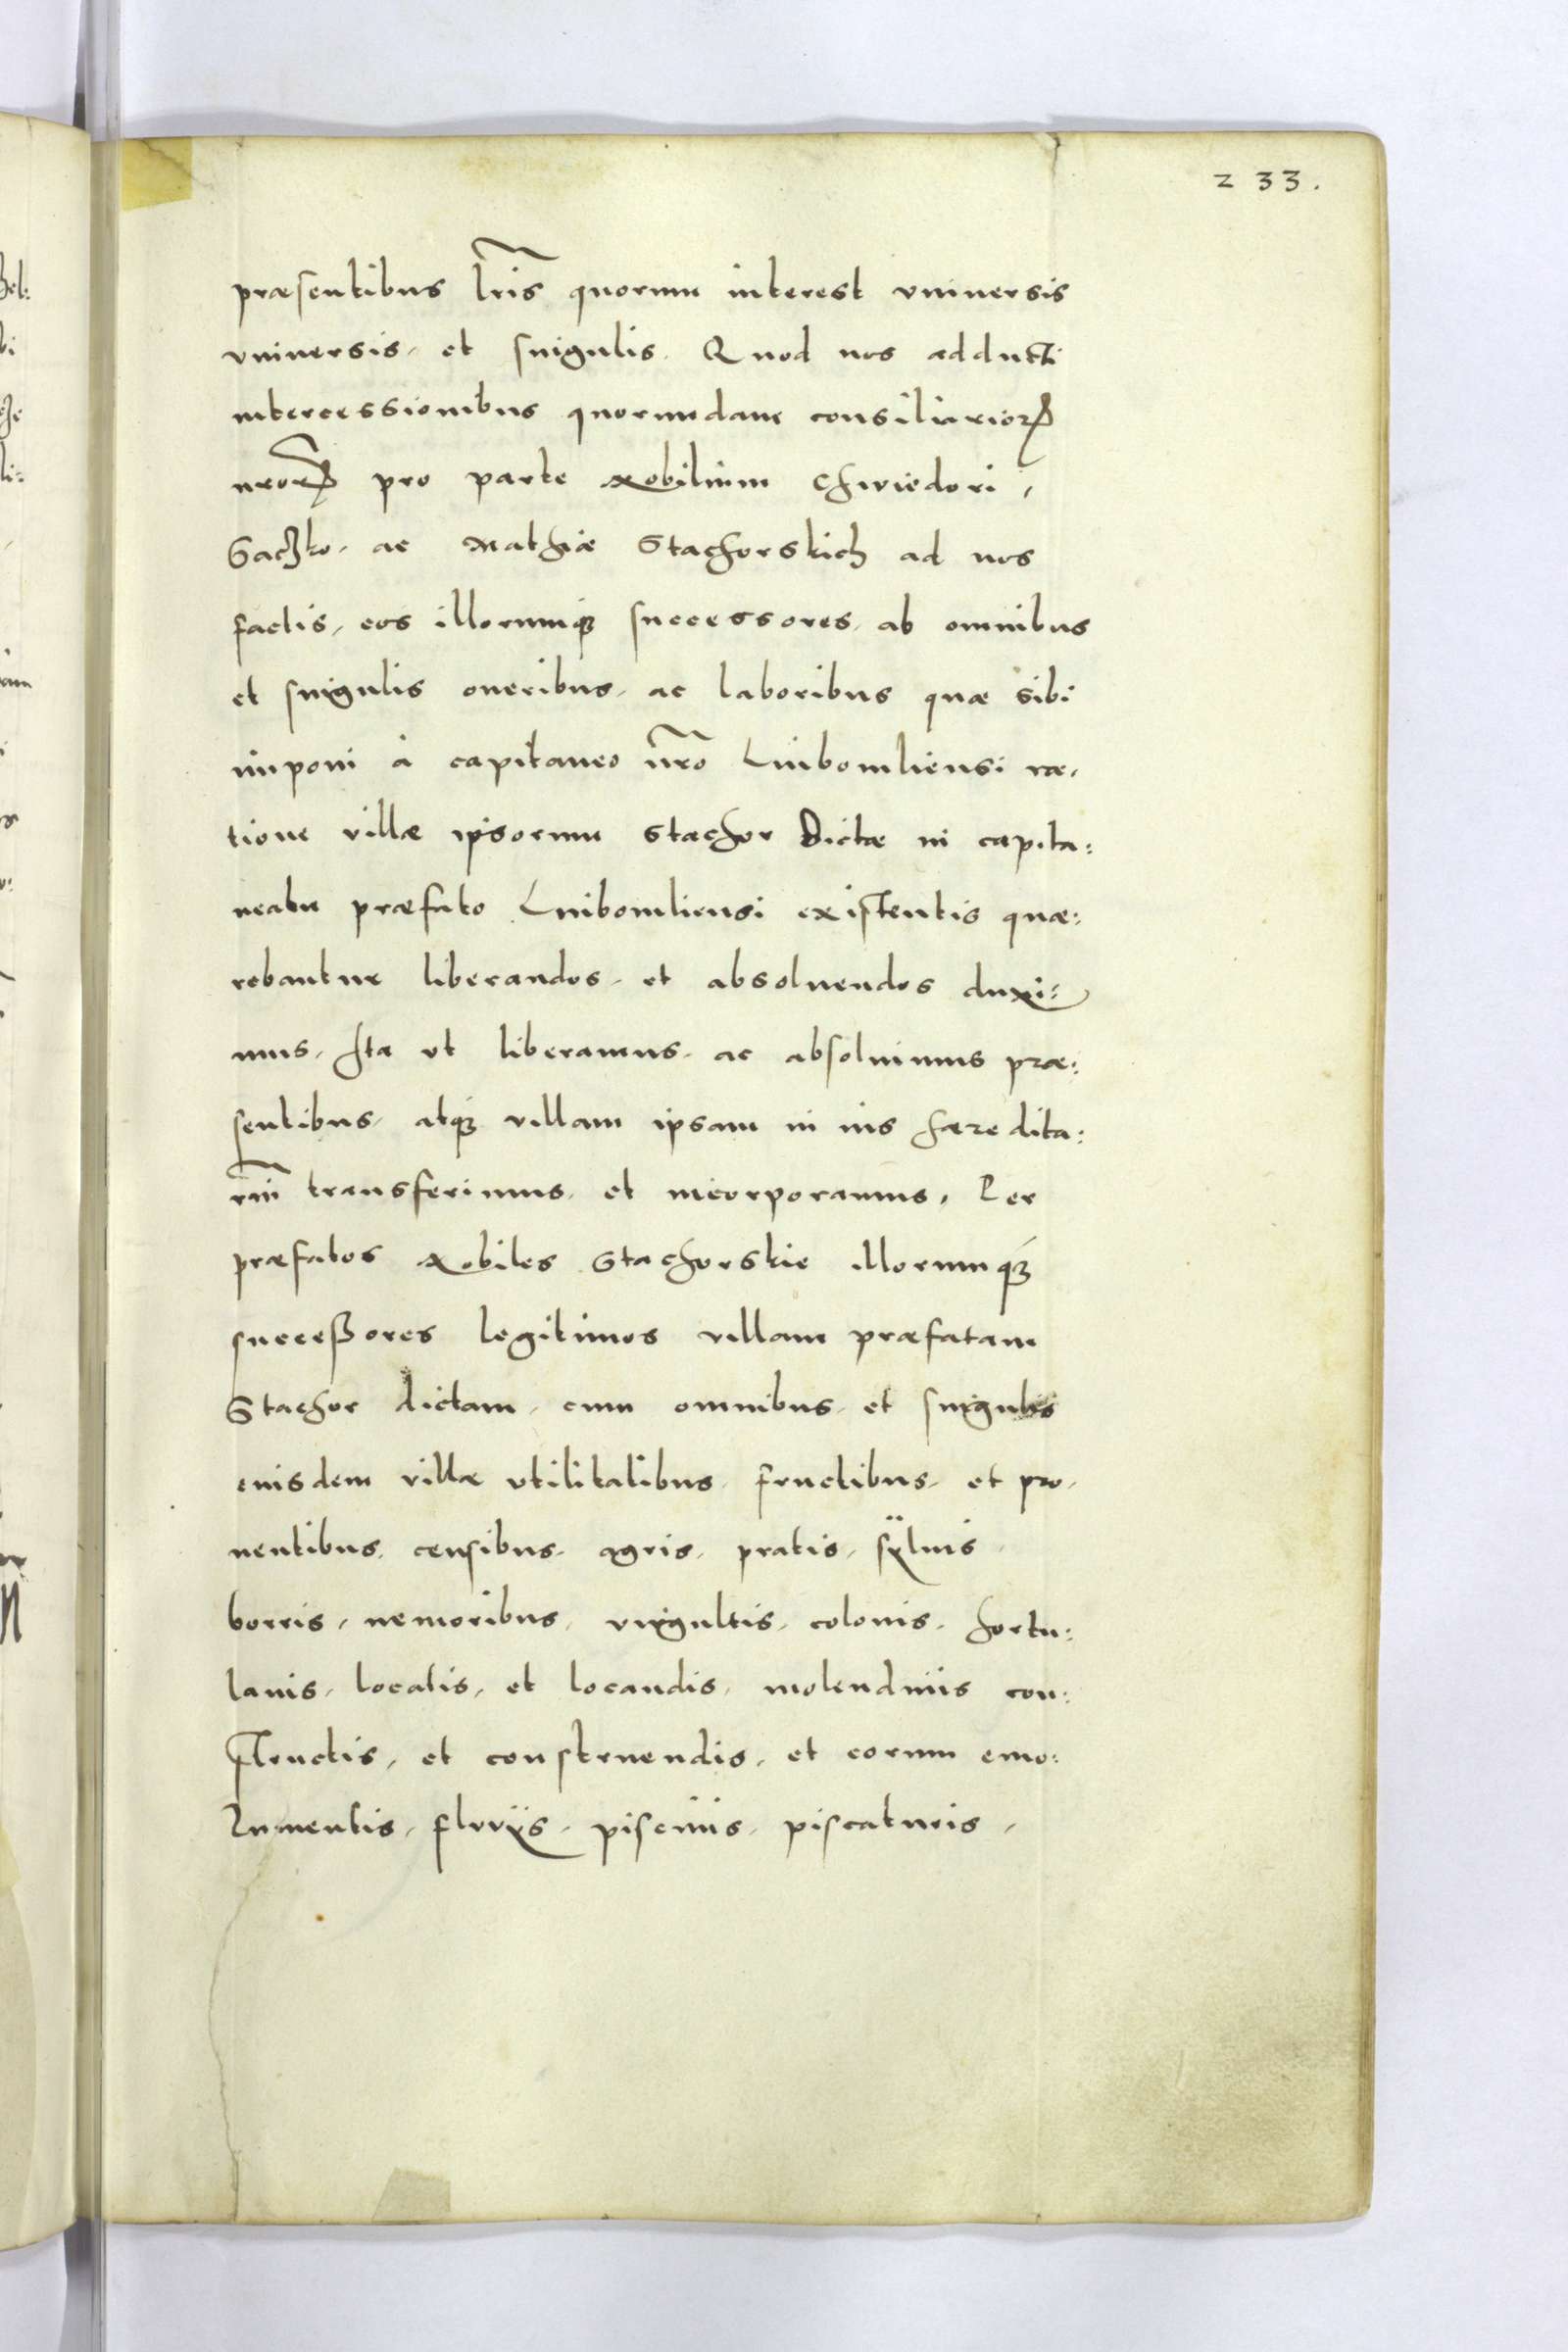 233.
præsentibus lris quorum interest vniuersis
vniuersis, et singulis. Quod nos adducti
intercessionibus quorundam consiliarioꝝ
nroꝝ pro parte Nobilium Chwiedori,
Saczko, ac Mathiæ Stachorskich ad nos
factis, eos illorumqꝫ successores, ab omnibus
et singulis oneribus, ac laboribus quæ sibi
imponi à capitaneo nro Luibomliensi ra,
tione villæ ipsorum Stachor Dictæ in capita:
neatu præfato Luibomliensi existentis quæ:
rebantur liberandos, et absoluendos duxi:
mus, Ita vt liberamus, ac absoluimus præ:
sentibus, atqꝫ villam ipsam in ius hæredita:
rm transferimus, et incorporamus, Per
præfatos Nobiles Stachorskie illorumqꝫ
succeßores legitimos villam præfatam
Stachor dictam, cum omnibus, et singulis
eiusdem villæ vtilitatibus, fructibus, et pro,
uentibus, censibus, agris, pratis, sÿluis,
borris, nemoribus, virgultis, colonis, hortu:
lanis, locatis, et locandis, molendinis con:
structis, et construendis, et eorum emo:
lumentis, fluvijs, piscinis, piscaturis,